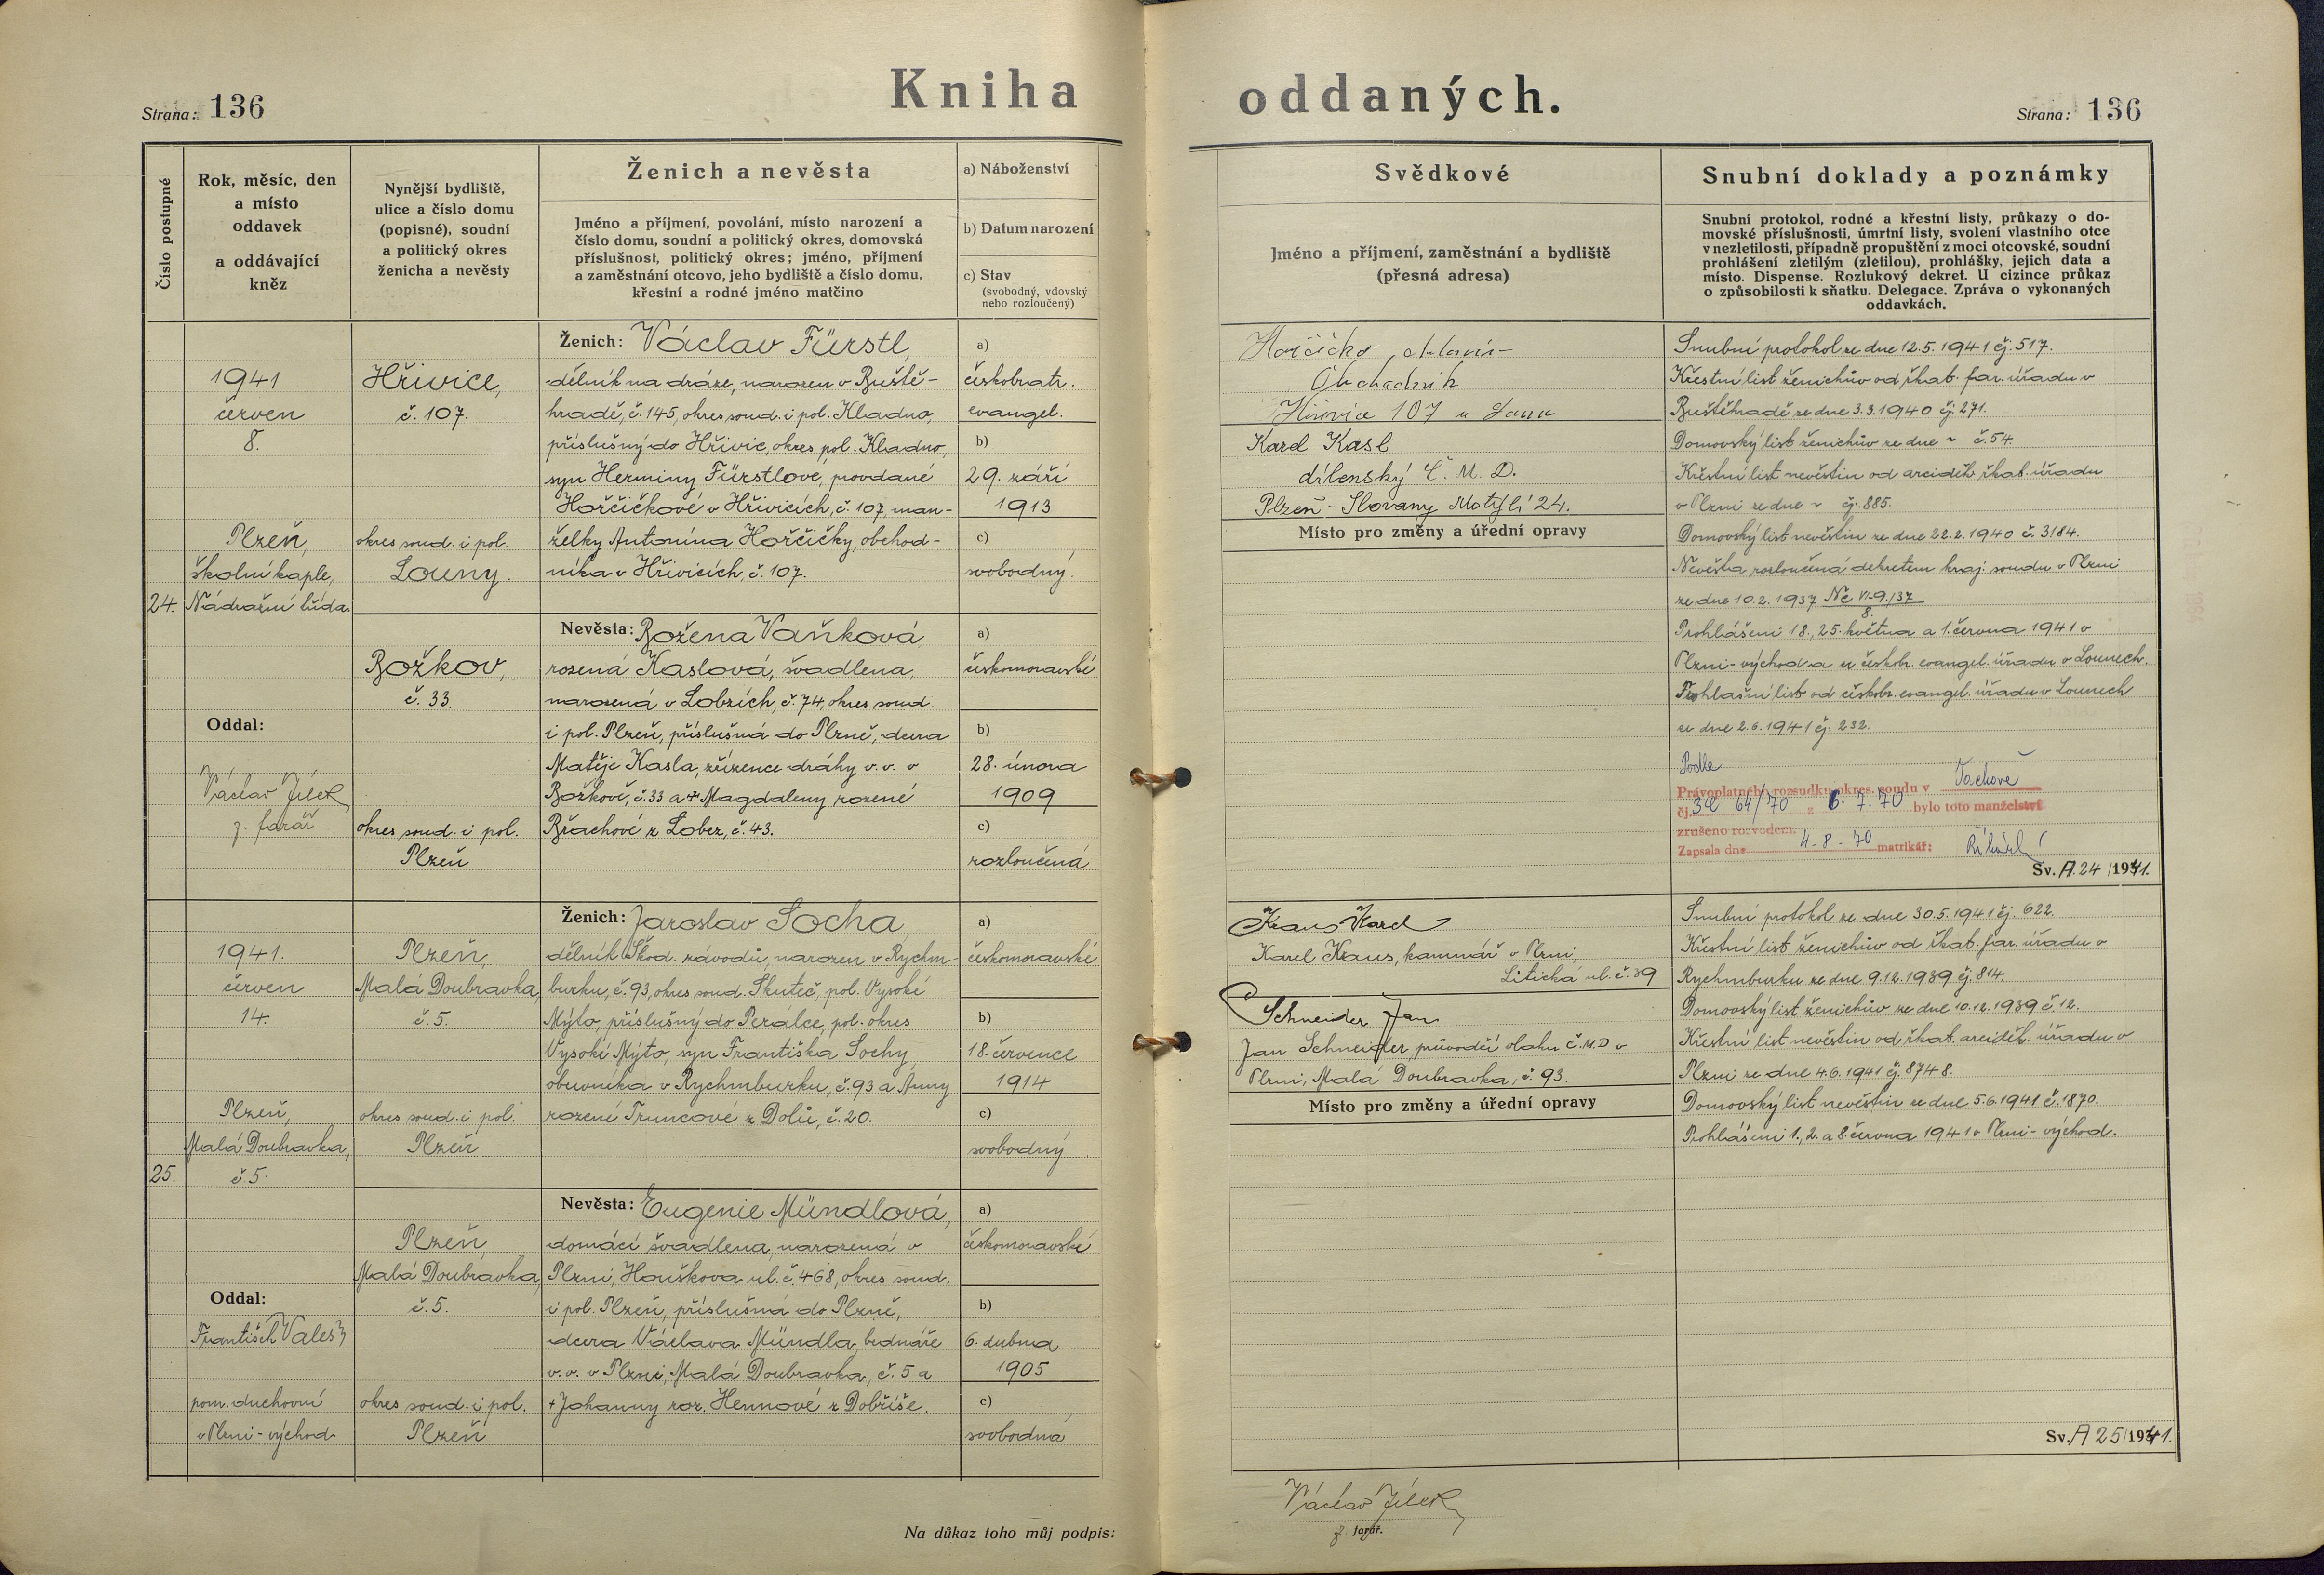 Kniha oddaných.
Strana: 136
Strana: 136
Číslo postupné
Rok, měsíc, den
a místo
oddavek
a oddávající
kněz
Nynější bydliště,
ulice a číslo domu
(popisné), soudní
a politický okres
ženicha a nevěsty
Ženich a nevěsta
Jméno a příjmení, povolání, místo narození a
číslo domu, soudní a politický okres, domovská
příslušnost, politický okres; jméno, příjmení
a zaměstnání otcovo, jeho bydliště a číslo domu,
křestní a rodné jméno matčino
a) Náboženství
b) Datum narození
c) Stav
(svobodný, vdovský
nebo rozloučený)
Svědkové
Jméno a příjmení, zaměstnání a bydliště
(přesná adresa)
Snubní doklady a poznámky
Snubní protokol, rodné a křestní listy, průkazy o do-
movské příslušnosti, úmrtní listy, svolení vlastního otce
v nezletilosti, případně propuštění z moci otcovské, soudní
prohlášení zletilým (zletilou), prohlášky, jejich data a
místo. Dispense. Rozlukový dekret. U cizince průkaz
o způsobilosti k sňatku. Delegace. Zpráva o vykonaných
oddavkách.
24.
1941
červen
8.
Plzeň,
školní kaple,
Nádražní třída
Oddal:
Václav Jílek
f. farář
Hřivice,
č. 107.
okres soud. i pol.
Louny.
Božkov,
č. 33.
okres soud. i pol.
Plzeň
Ženich: Václav Fürstl,
dělník na dráze, narozen v Buště-
hradě, č. 145, okres soud. i pol. Kladno,
příslušný do Hřivic, okres pol. Kladno,
syn Herminy Fürstlové, provdané
Hořčičkové v Hřivicích, č. 107, man-
želky Antonína Hořčičky, obchod-
níka v Hřivicích, č. 107.
Nevěsta: Božena Vaňková
rozená Kaslová, švadlena,
narozená v Lobzích, č. 74, okres soud.
i pol. Plzeň, příslušná do Plzně, dcera
Matěje Kasla, zřízence dráhy v. v. v
Božkově, č. 33 a Magdaleny rozené
Bžachové z Lobez, č. 43.
a)
českobratr.
evangel.
b)
29. září
1913
c)
svobodný.
a)
českomoravské
b)
28. února
1909
c)
rozloučená
Hořčička
Obchodník
Hřivice 107 u Loun
Karel Kasl
dílenský Č. M. D.
Plzeň - Slovany Motýlí 24.
Místo pro změny a úřední opravy
Snubní protokol ze dne 12.5.1941 čj. 517.
Křestní list ženichův od řkat. far. úřadu v
Buštěhradě ze dne 3.3.1940 čj. 271.
Domovský list ženichův ze dne ~ č. 54.
Křestní list nevěstin od arciděk. řkat. úřadu
v Plzni ze dne ~ čj. 885.
Domovský list nevěstin ze dne 22.2.1940 č. 3184.
Nevěsta rozloučená dekretem kraj. soudu v Plzni
ze dne 10.2.1937 Nč VI-9/37
8.
Prohlášeni 18., 25. května a 1. června 1941 v
Plzni-východ a u českobr. evangel. úřadu v Lounech.
Prohlašní list od českobr. evangel. úřadu v Lounech
ze dne 2.6.1941 čj. 232.
Podle
Právoplatného rozsudku okres. soudu v Tachově
čj. 3C 64/70 z 6. 7. 70 bylo toto manželství
zrušeno rozvodem.
Zapsala dne 4-8-70 matrikář:
Sv. A. 24/1941.
25.
1941.
červen
14.
Plzeň,
Malá Doubravka,
č 5.
Oddal:
František Valeš
pom. duchovní
v Plzni-východ
Plzeň,
Malá Doubravka,
č. 5.
okres soud. i pol.
Plzeň
Plzeň,
Malá Doubravka,
č. 5.
okres soud. i pol.
Plzeň
Ženich: Jaroslav Socha
dělník Škod. závodů, narozen v Rychm-
burku, č. 93, okres soud. Skuteč, pol. Vysoké
Mýto, příslušný do Perálce, pol. okres
Vysoké Mýto, syn Františka Sochy,
obuvníka v Rychmburku, č. 93 a Anny
rozené Truncové z Dolů, č. 20.
Nevěsta: Eugenie Mündlová,
domácí švadlena, narozená v
Plzni, Houškova ul. č. 468, okres soud.
i pol. Plzeň, příslušná do Plzně,
dcera Václava Mündla, bednáře
v. v. v Plzni, Malá Doubravka, č. 5 a
+ Johanny roz. Hennové z Dobříše.
a)
českomoravské
b)
18. července
1914
c)
svobodný
a)
českomoravské
b)
6. dubna
1905
c)
svobodná
Kraus Karel
Karel Kraus, kamnář v Plzni,
Litická ul. č. 39
Schneider Jan
Jan Schneider, průvodčí vlaku Č.M.D v
Plzni, Malá Doubravka, č. 93.
Místo pro změny a úřední opravy
Snubní protokol ze dne 30.5.1941 čj. 622.
Křestní list ženichův od řkat. far. úřadu v
Rychmburku ze dne 9.12.1939 čj. 814.
Domovský list ženichův ze dne 10.12.1939 č. 12.
Křestní list nevěstin od řkat. arciděk. úřadu v
Plzni ze dne 4.6.1941 čj. 8748.
Domovský list nevěstin ze dne 5.6.1941 č. 1870.
Prohlášeni 1., 2. a 8. června 1941 v Plzni-východ.
Sv. A 25/1941.
Na důkaz toho můj podpis:
Václav Jílek
f. farář.